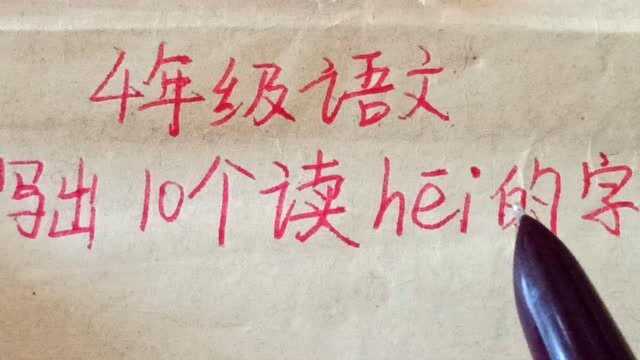 4年级语文
写出10个读hēi的字